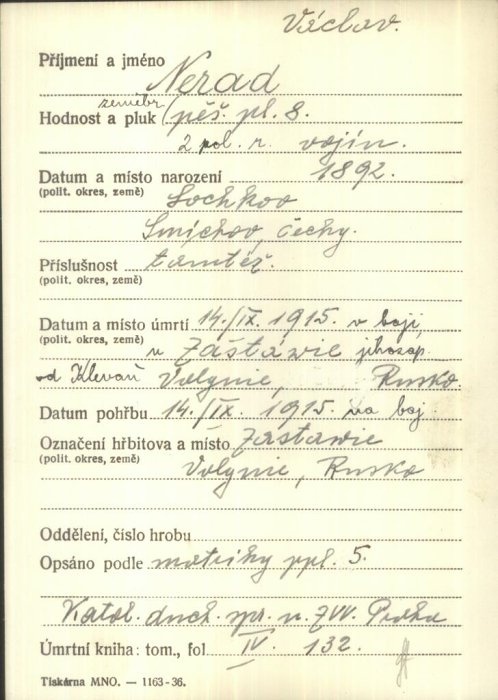 Václav.
Příjmení a jméno Nerad
zeměbr.
Hodnost a pluk pěš. pl. 8.
2 pol. r. vojín.
Datum a místo narození 1892.
(polit. okres, země) Lochkov
Smíchov, Čechy.
Příslušnost tamtéž.
(polit. okres, země)
Datum a místo úmrtí 14./IX. 1915. v boji,
(polit. okres, země) u Zástávie jihozap.
od Klevaň Volynie, Rusko
Datum pohřbu 14./IX. 1915. na boj.
Označení hřbitova a místo Zastavie
(polit. okres, země) Volynie, Rusko
Oddělení, číslo hrobu
Opsáno podle matriky ppl. 5.
Katol. duch. spr. u ZVV. Praha
Úmrtní kniha: tom., fol IV. 132.
Tiskárna MNO. — 1163-36.